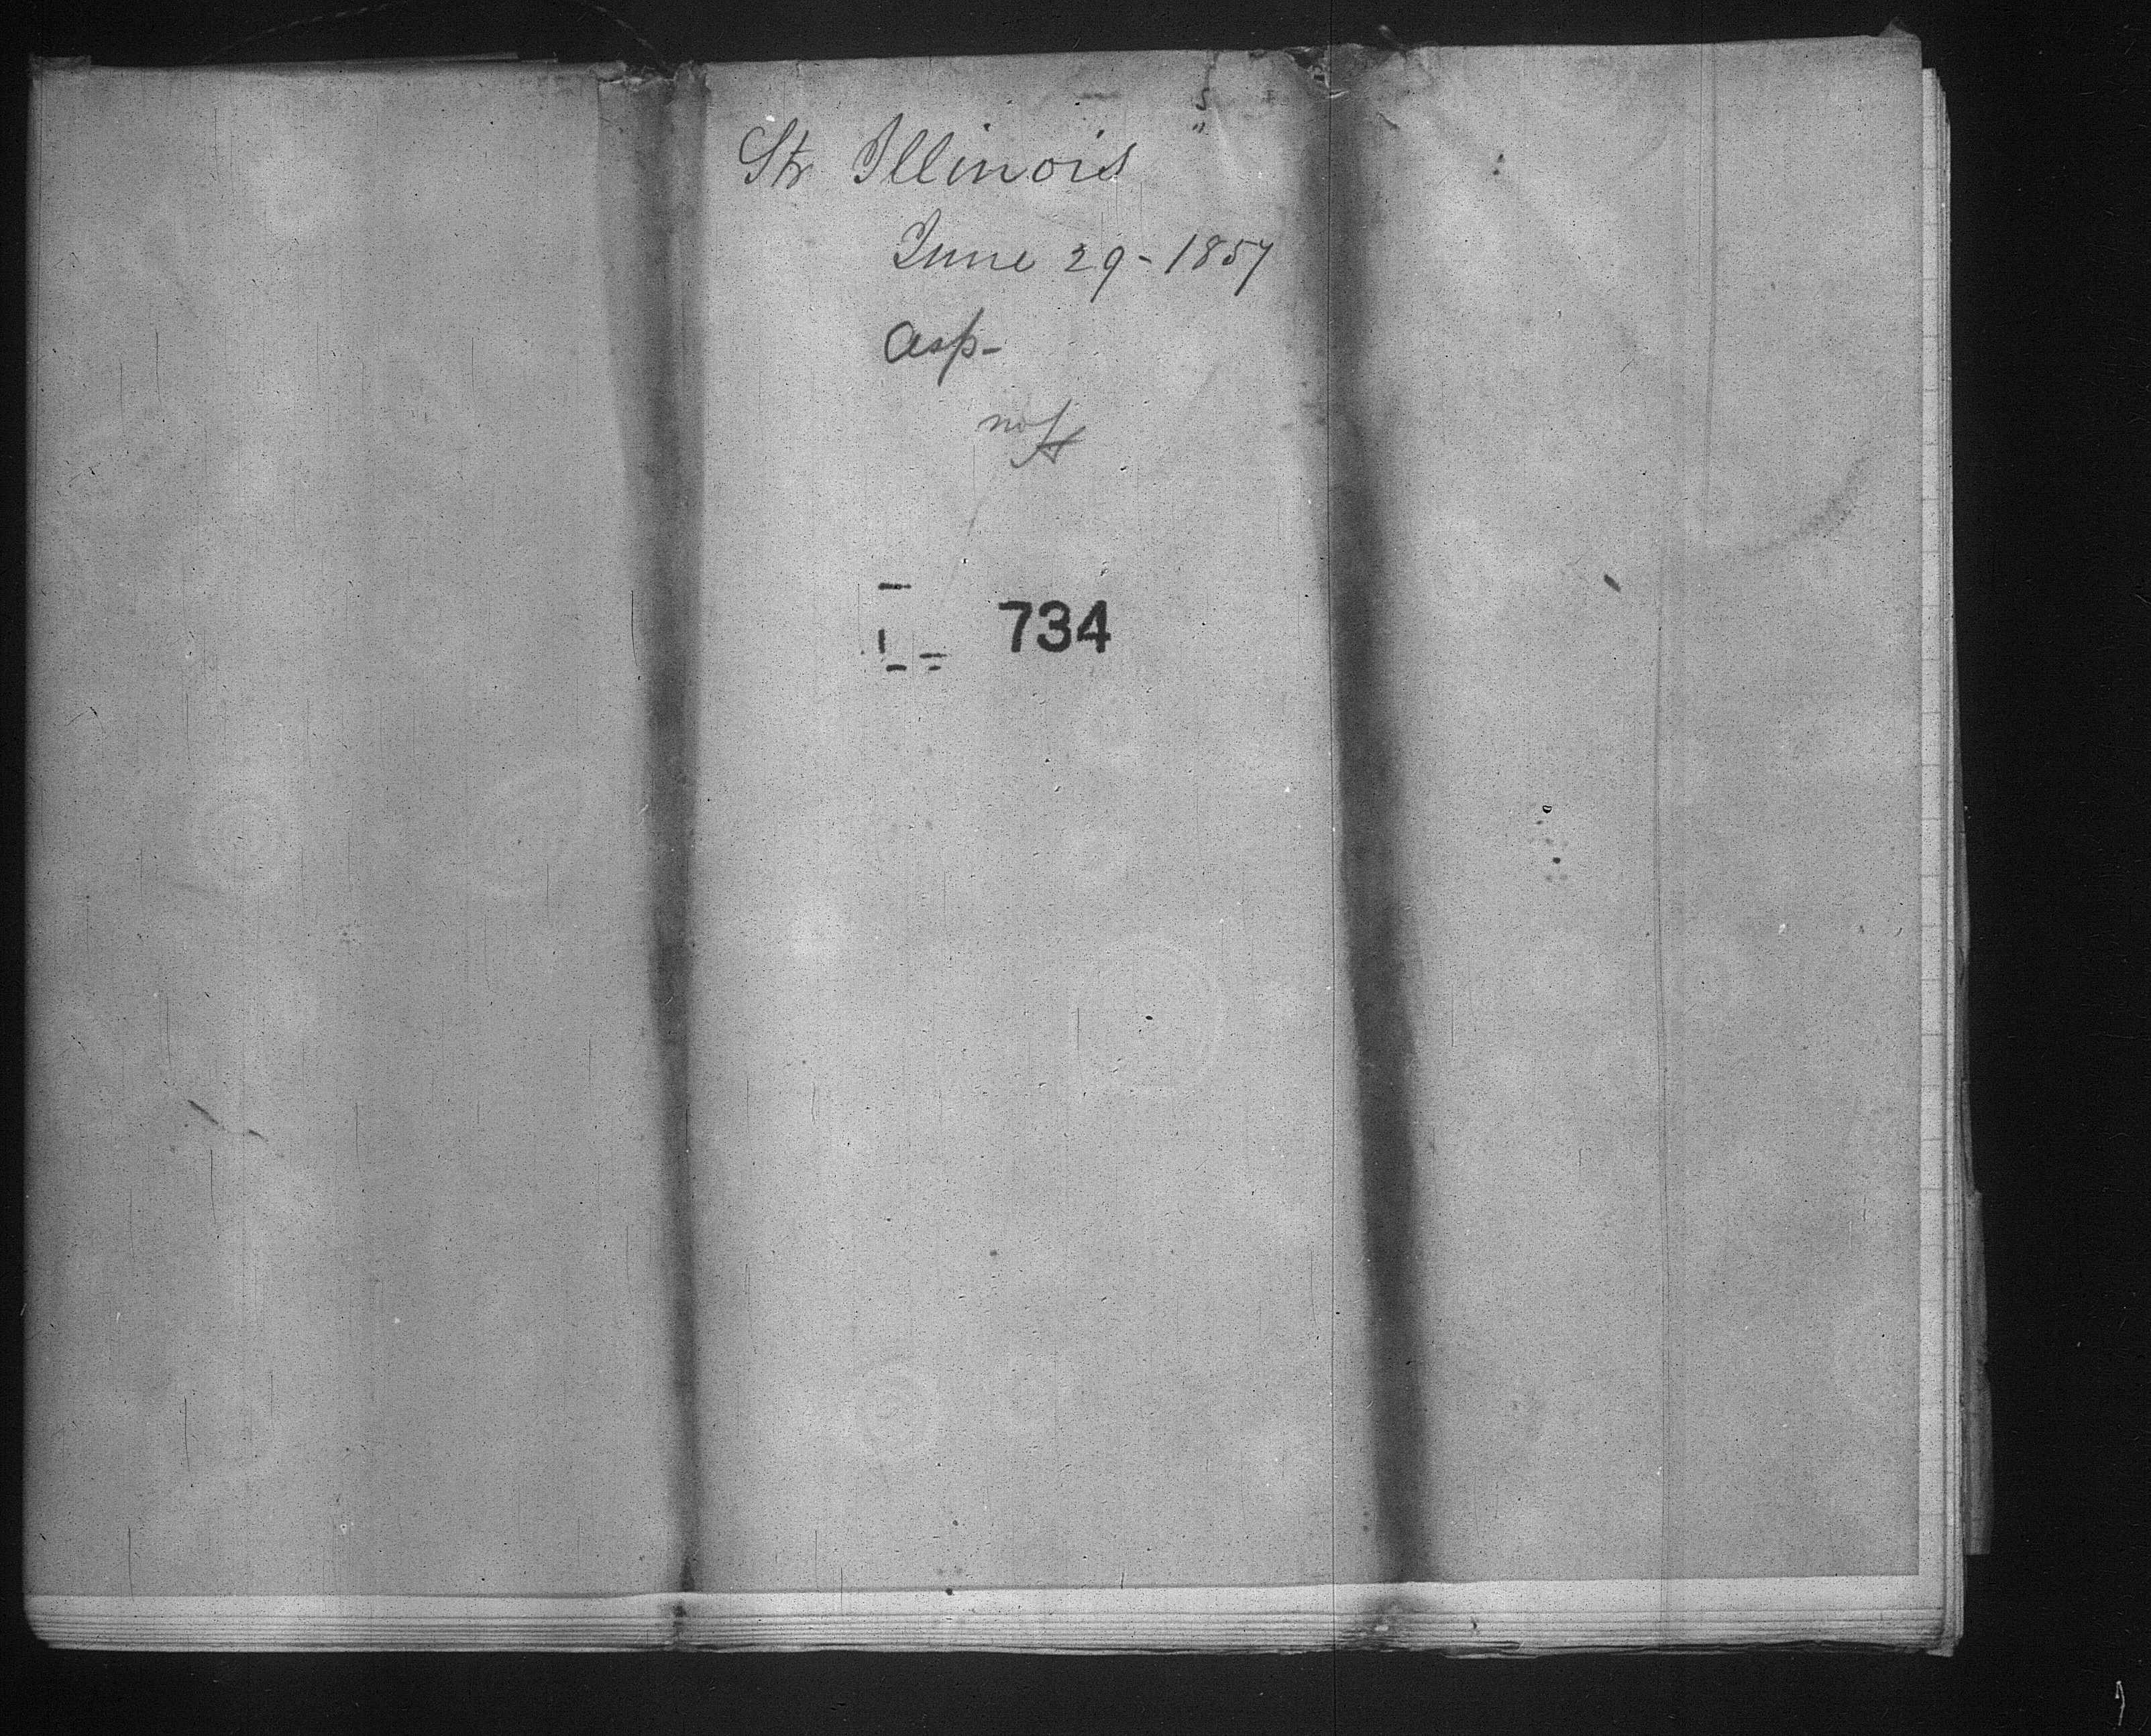 Str Illinois
June 29-1857
Asp-
734